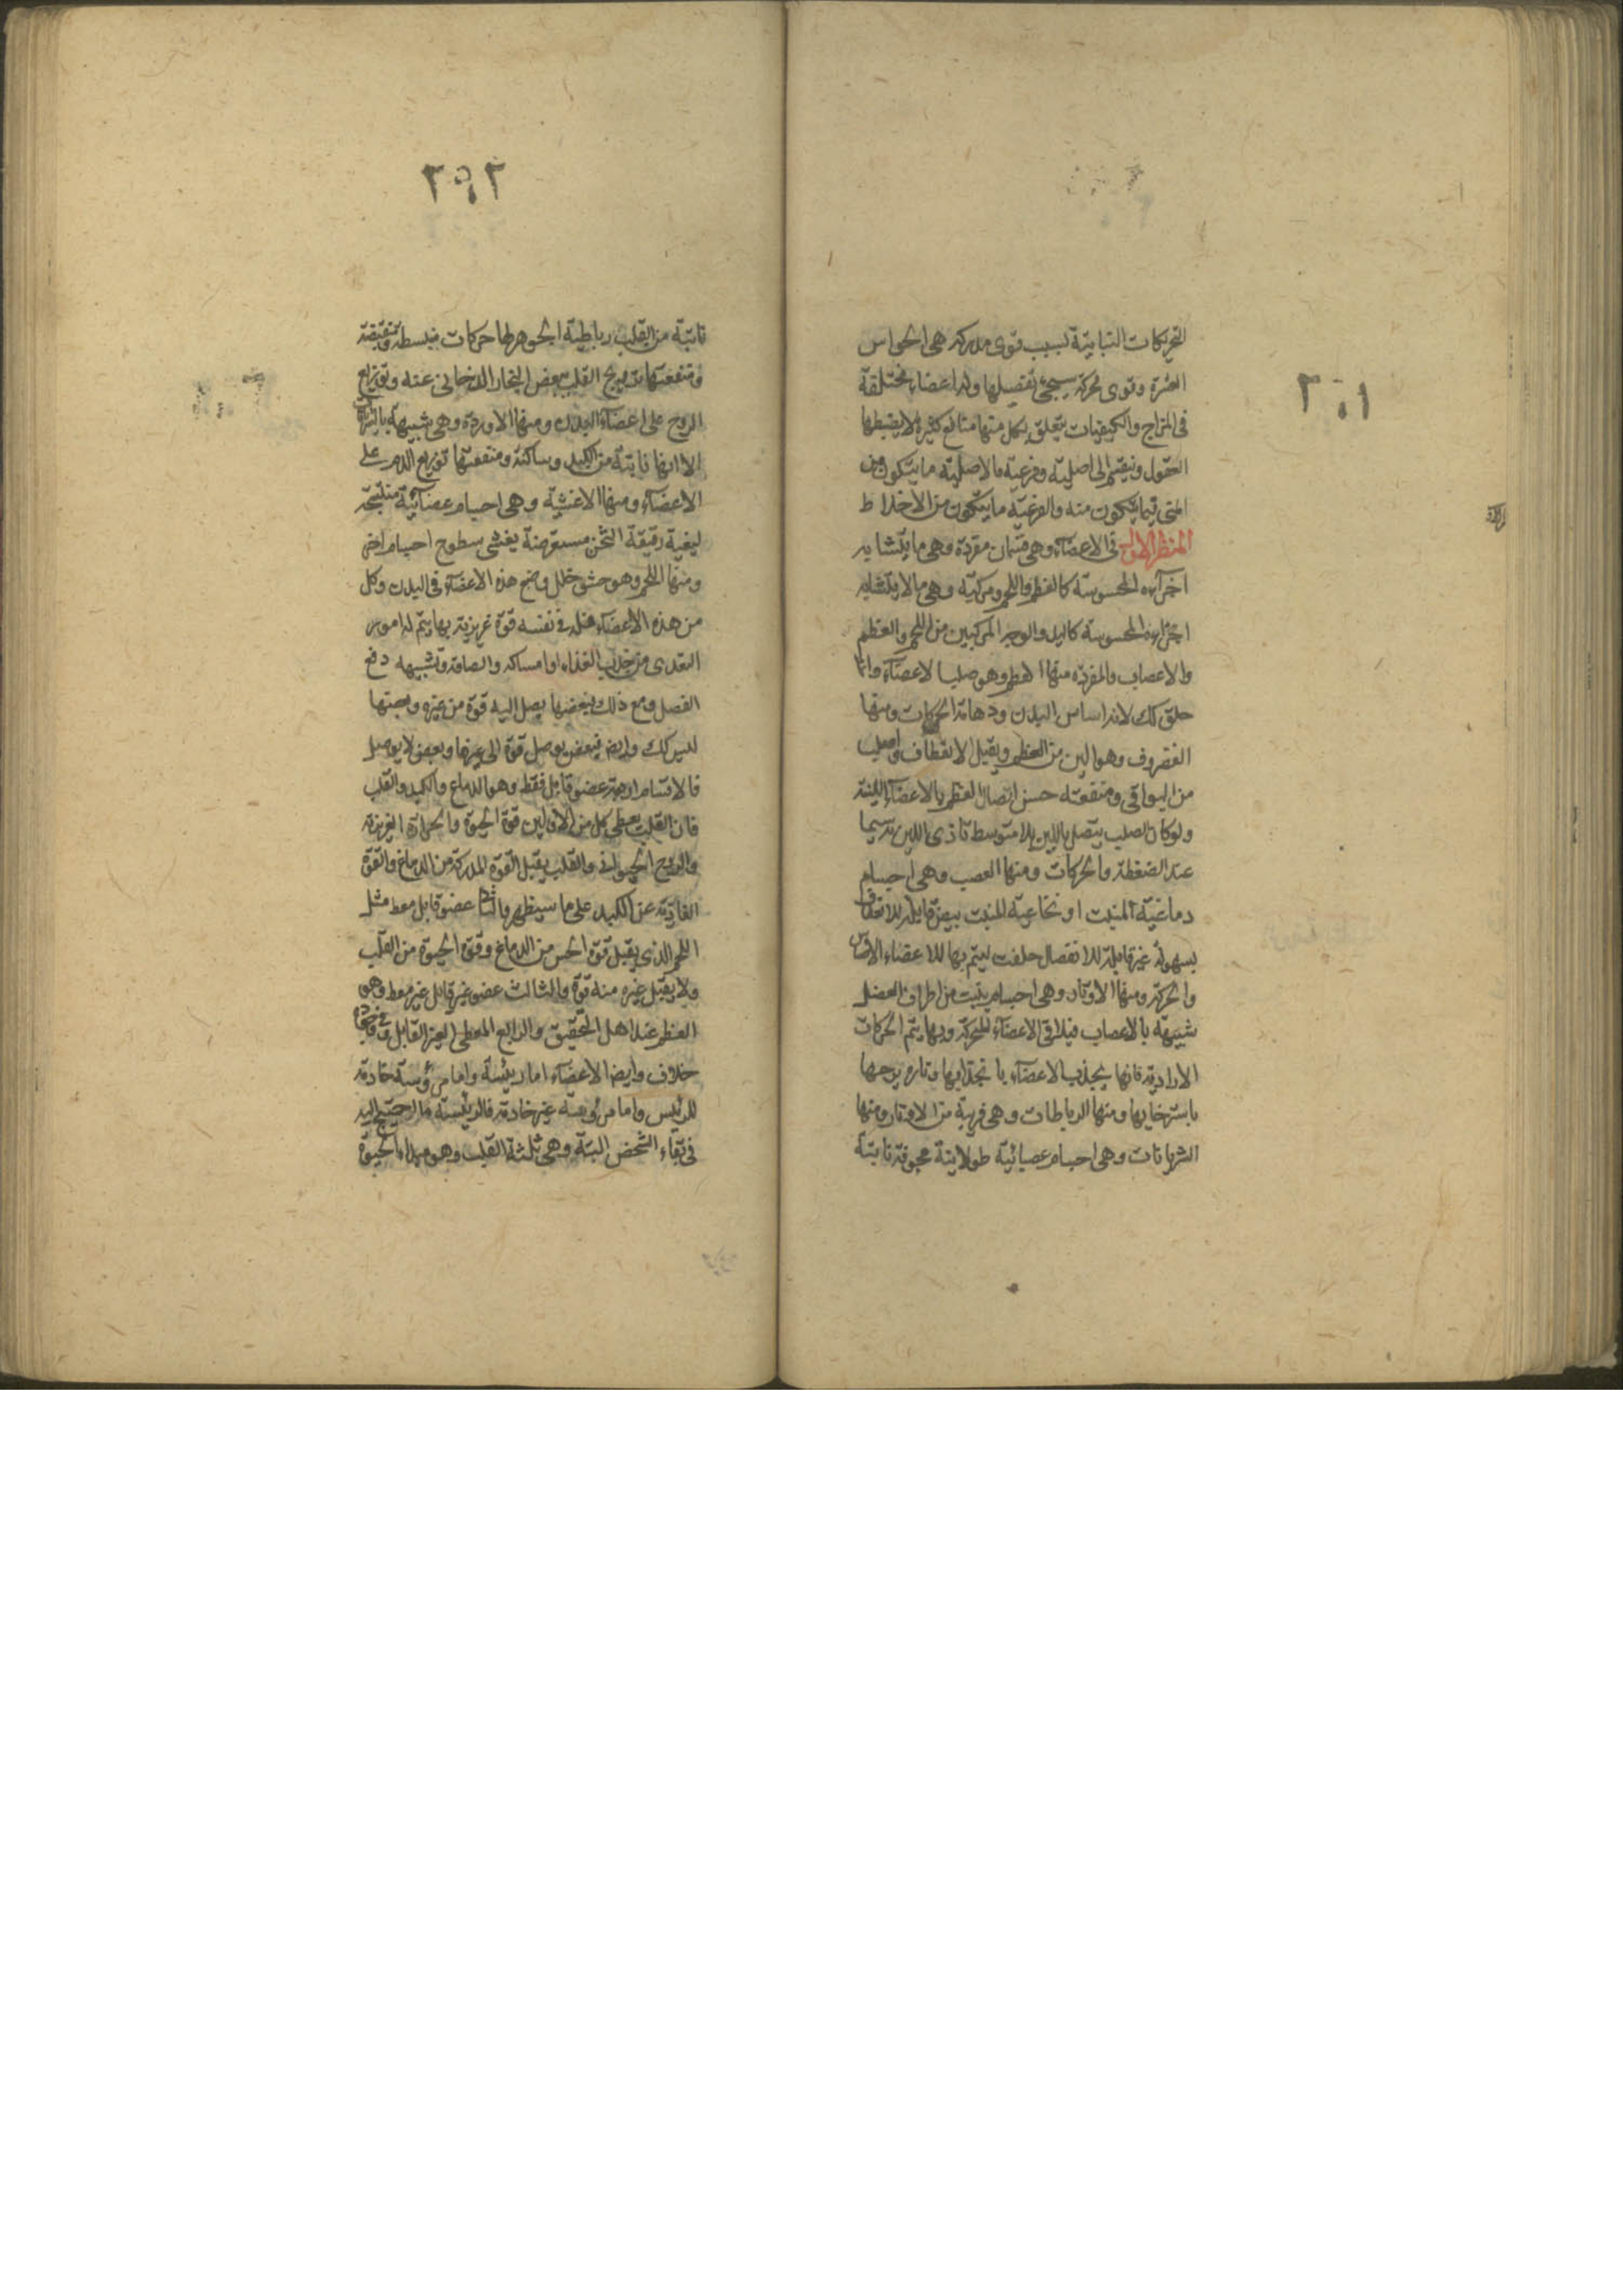 التحريكات التباينة لسبب قوى مدركه هى الحواس
العشرة وقوى محركة سيجئ تفصيلها وله اعضاء مختلفة
فى المزاج والكيفيات يتعلق بكل منها منافع كثيرة لا يضبطها
العقول وينقسم الى اصلية وفرعية فالاصلية ما يتكون من
المنى فيما يتكون منه والفرعية ما يتكون من الاخلاط
المنظر الاول فى الاعضآء وهى قسمان مفردة وهى ما يتشابه
اجزآءه المحسوسة كالعظم واللحم ومركبة وهى مالا يتشابه
اجزاءه المحسوسة كاليد والوجه المركبين من اللحم والعظم
والاعصاب والمفرده منها العظم وهو صلب الاعضآء وانما
خلق كك لانه اساس البدن ودعامة الحركات ومنها
الغضروف وهو الين من العظم ويقبل الانعطاف واصلب
من البواقى ومنفعته حسن اتصال العظم بالاعضآء اللينة
ولو كان الصلب يتصل باللين بلا متوسط تاذى اللين سيما
عند الضغطة والحركات ومنها العصب وهى اجسام
دماغية المنبت او نخاعية المنبت بيض قابلة للانعطاف
بسهولة غير قابلة للانفصال خلقت ليتم بها للاعضاء الاحساس
والحركة ومنها الاوتار وهى اجسام ينبت من اطراف العضل
شبيهة بالاعصاب فيلاقى الاعضآء للحركة وبها يتم الحركات
الارادية فانها يجذب الاعضآء بانجذابها وتاره يرجها
باسترخايها ومنها الرباطات وهى قريبة من الاوتار ومنها
الشريانات وهى اجسام عصبانية طولانية مجوفة نابتة
٢٠١
٢٠٢
نابتة من القلب رباطية الجوهر لها حركات منبسطة ومنقبضة
ومنفعتها ترويح القلب بعض البخار الدخانى عنه وتوزيع
الروح على اعضآء البدن ومنها الاوردة وهى شبيهة بالشريانات
الا انها نابتة من الكبد وساكنة ومنفعتها توزيع الدم على
الاعضآء ومنها الاغشية وهى اجسام عصبآنية منتسجة
ليفية رقيقة الثخن مستعرضة يغشى سطوح اجسام اخر
ومنها اللحم وهو حشو خلل وضع هذه الاعضآء فى البدن وكل
من هذه الاعضآء فله فى نفسه قوة غريزية بها يتم له امور
التغدى من جذب الغذاء او امساكه والصاقه وتشبيهه دفع
الفضل ومع ذلك فبعضها يصل اليه قوة من غيره وبعضها
ليس كك وايضا فبعض يوصل قوة الى غيرها وبعض لا يوصل
فالاقسام اربعة عضو قابل فقط وهو الدماغ والكبد والقلب
فان القلب يعطى كل من الاولين قوة الحيوة والحرارة الغريزية
والروح الحيوانى والقلب يقبل القوة المدركة من الدماغ والقوة
الغاذية عن الكبد على ما سيظهر والثانى عضو قابل معط مثل
اللحم الذى يقبل قوة الحس من الدماغ وقوة الحيوة من القلب
ولا يقبل غيره منه قوة والثالث عضو غير قابل غير معط وهو
العظم عند اهل التحقيق والرابع المعطى الغير القابل وفى وجوده
خلاف وايضا الاعضآء اما رئيسة واما مرؤسة خادمة
للرئيس واما مرؤسة غير خادمة فالرئيسة ما احتيج اليه
فى بقاء الشخص البتة وهى ثلثة القلب وهو مبداء الحيوة